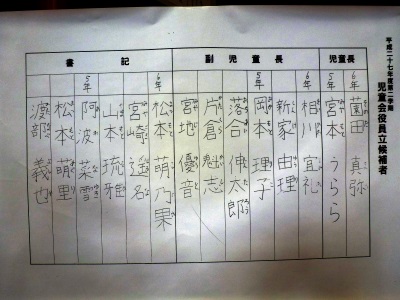 平成二十七年度第二学期
児童会役員立候補者
児童長
6年
薗田 真弥
5年
宮本 うらら
副児童長
6年
相川 宜礼
新家 由理
5年
岡本 理子
落合 伸太郎
片倉 魁志
宮地 優音
書記
6年
松本 萌乃果
宮崎 遥名
山本 琉雅
5年
阿波 菜雪
松本 萌里
渡部 義也